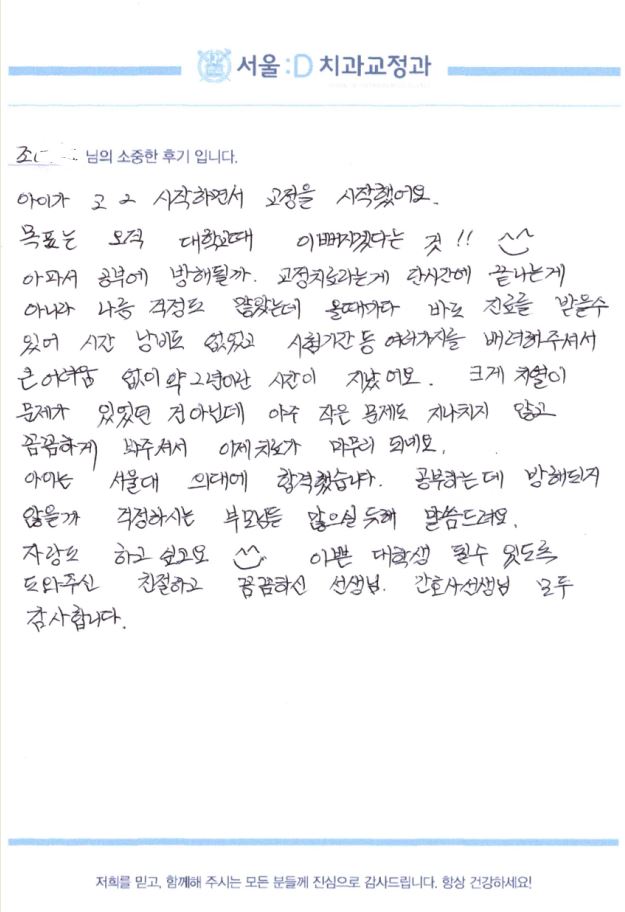 서울:D 치과교정과
조 님의 소중한 후기 입니다.
아이가 고2 시작하면서 교정을 시작했어요.
목표는 오직 대학교때 이뻐지겠다는 것!!
아파서 공부에 방해될까. 교정치료라는게 단시간에 끝나는게
아니라 나름 걱정도 많았는데 올때마다 바로 진료를 받을수
있어 시간 낭비도 없었고 시험기간 등 여러가지를 배려해주셔서
큰 어려움 없이 약 2년이란 시간이 지났어요. 크게 치열이
문제가 있었던 건 아닌데 아주 작은 문제도 지나치지 않고
꼼꼼하게 봐주셔서 이제 치료가 마무리 되네요.
아이는 서울대 의대에 합격했습니다. 공부하는데 방해되지
않을까 걱정하시는 부모님들 많으실 듯해 말씀드려요.
자랑도 하고 싶고요 이쁜 대학생 될수 있도록
도와주신 친절하고 꼼꼼하신 선생님. 간호사선생님 모두
감사합니다.
저희를 믿고, 함께해 주시는 모든 분들께 진심으로 감사드립니다. 항상 건강하세요!